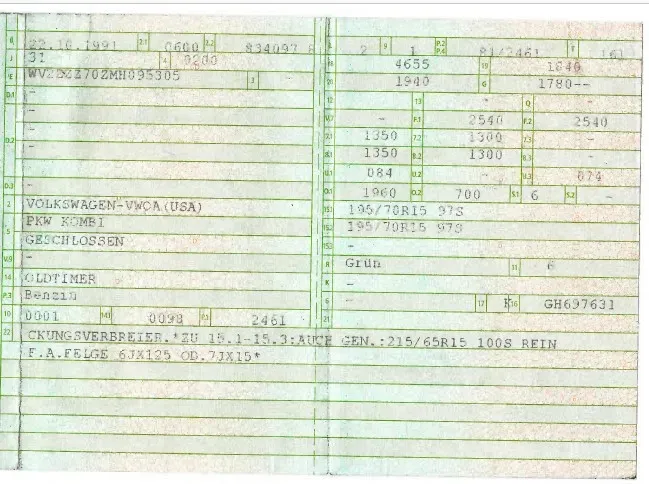 B 22.10.1991 2.1 0600 2.2 834097
J 31 4 0200
E WVZZZZ70ZMH095305 3
D.1 -
-
D.2 -
-
D.3 -
2 VOLKSWAGEN-VWOA(USA)
5 PKW KOMBI
GESCHLOSSEN
V.9 -
14 OLDTIMER
P.3 Benzin
10 0001 14.1 0098 P.1 2461
22 CKUNGSVERBREIER.*ZU 15.1-15.3:AUCH GEN.:215/65R15 100S REIN
F.A.FELGE 6JX125 OD.7JX15*
L 2 9 1 P.2 P.4 81/2461 T 161
18 4655 19 1840
20 1940 G 1780--
12 - 13 - Q -
V.7 - F.1 2540 F.2 2540
7.1 1350 7.2 1300 7.3 -
8.1 1350 8.2 1300 8.3 -
U.1 084 U.2 - U.3 074
O.1 1960 O.2 700 S.1 6 S.2 -
15.1 195/70R15 97S
15.2 195/70R15 97S
15.3 -
R Grün 11 6
K -
6 - 17 K 16 GH697631
21